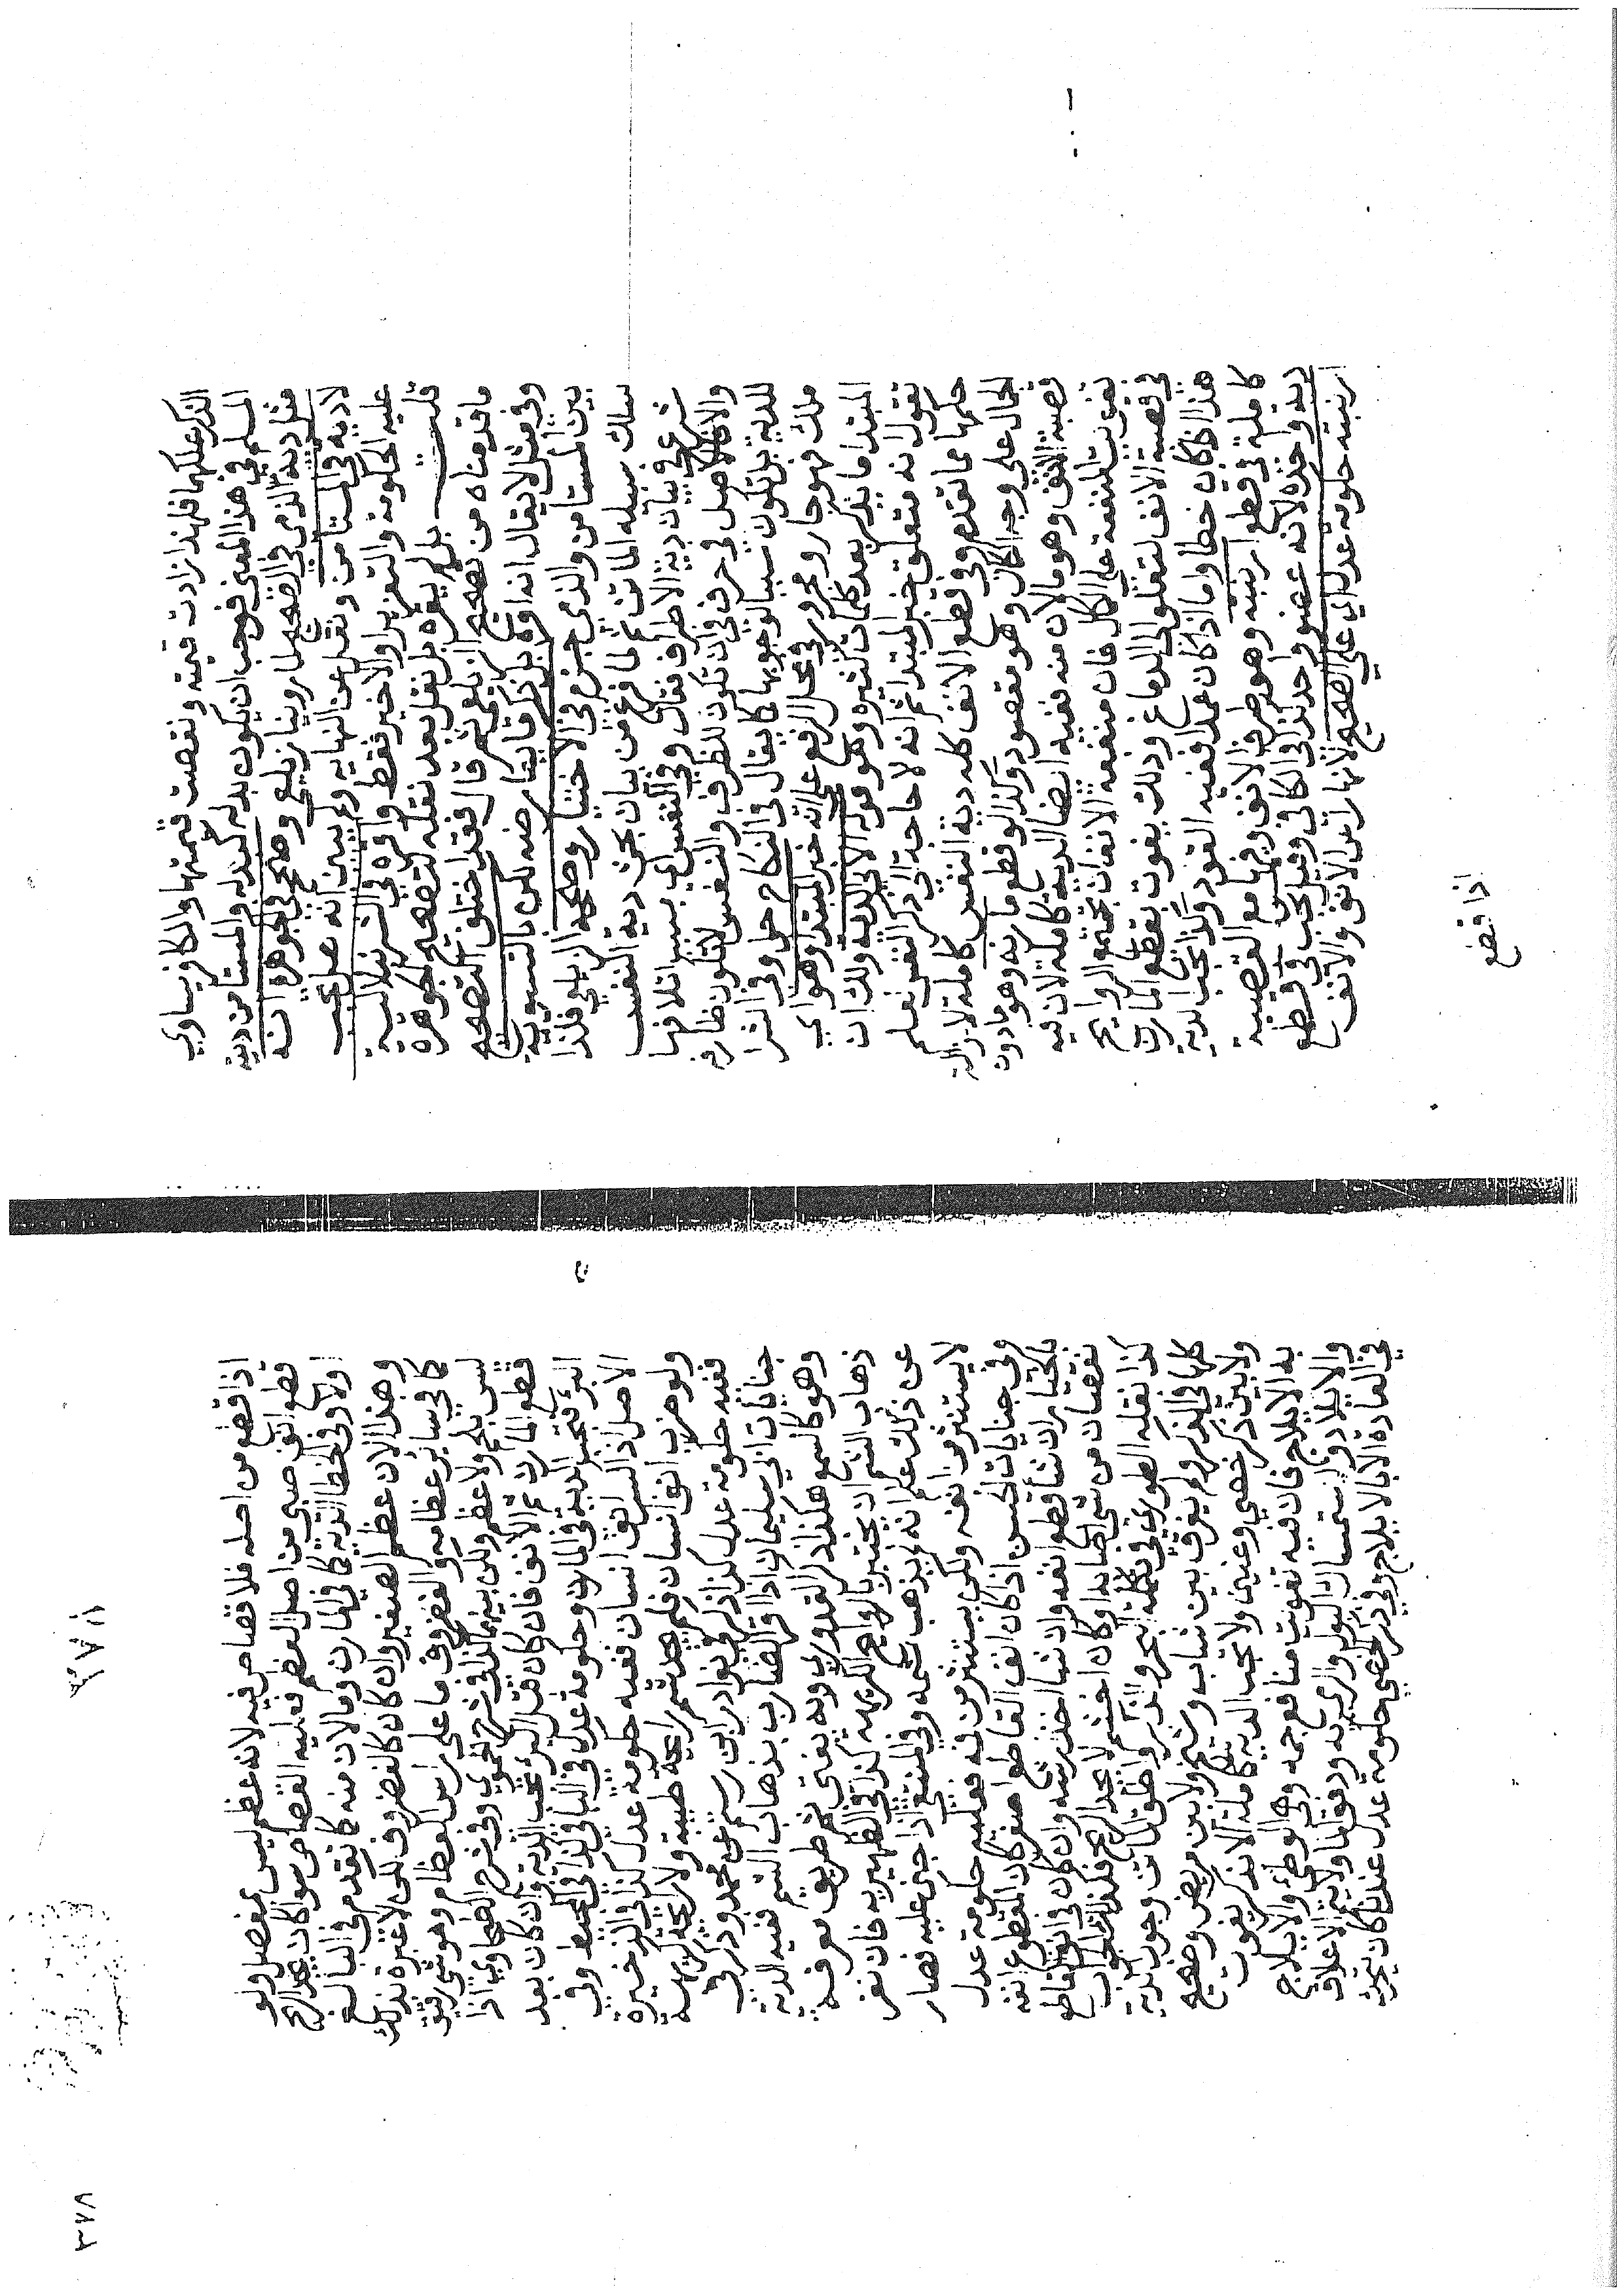 الذكر عملكها فلهذا زادت قيمته ونقصت قيمتها والكافر يساوي
المسلم في هذا المعنى فوجب ان يكون بدله كبدله والمستأمن ديته
مثل دية الذمي في الصحيح لما روينا زيلعي وصحح في الجوهرة انه
لا دية في المستأمن ونقل عن النهاية ولم يبين انه هل يجب
عليه الحكومة والتعزير او الاخير فقط واقره في الشرنبلالية
قلت بل لم يقره بل نقل بعد نقله لتصحيح الجوهرة
ما قدمناه من تصحيح الزيلعي ثم قال فقد اختلف التصحيح
وفي مثل لا يقال انه اقره بل ذكر ما يعارضه لكن بالتسوية
بين المستأمن والذمي جزم في الاختيار وصححه الزيلعي فلذا
سلك سبيله الماتن ثم لما فرغ من بيان بحث دية النفس
شرع في بيان دية الاطراف فقال وفي النفس اي بسبب اتلافها
والا فالاصل في حرف في ان تكون للظرف والنفس لا تكون ظارفه
للدية بل تكون سببا لوجوبها كما يقال في النكاح حل وفي الشرا
ملك فهو جار ومجرور في محل الرفع على انه خبر المبتدا وهو اي
المبتدا ما يذكر بعد كلمات كثيره وهو قوله الاتي الدية ولك ان
تقول انه متعلق خبر المبتدا ثم انه لا حاجة الى ذكر النفس لعلم
حكمها مما تقدم وفي قطع الانف كله دية النفس كاملة لازالة
الجمال على وجه الكمال وهو مقصود وكذا لو قطع مارنه وهو ما دون
قصبة الانف وهو ما لان منه ففيه ايضا الدية كاملة لان فيه
تفويت المنفعة على الكمال فان منفعة الانف ان تجتمع الروايح
في قصبة الانف لتعلو الى الدماغ وذلك يفوت بقطع المارن
هذا اذا كان خطا واما اذا كان عمدا ففيه القود وكذا تجب الدية
كاملة في قطع ارنبته وهو طرف الانف ولو قطع مع القصبة
دية واحدة لانه عضو واحد كذا في الكافي وقيل يجب في قطع
ارنبته حكومة عدل اي على الصحيح لانها راس الانف والانف
اذا قطع
٢٨٤
اذا قطع من اصله فلا قصاص فيه لانه عظم ليس بمفصل ولو
قطع انف صبي من اصل العظم فعليه القصاص سوا كان يجد الريح
اولا وفي الخطا الدية كما في المارن وما لان منه كما تقدم في البالغ
وهذا لان عظم الصغير وان كان كالغضروف لكن لا عبرة بذلك
كما في سائر عظامه والغضروف ما على راس العظام وهو شي رقيق
ليس بلحم ولا عظم ولكن بينهما كذا في شرح الحموي وفي شرح الطحاوي اذا
قطع المارن ثم الانف فان كان قبل البرء تجب الدية وان كان بعد
البرء تجب الدية في المارن وحكومة عدل في الباقي كذا في المحيط وفي
الاصل اذا كسر انف انسان ففيه حكومة عدل كذا في الذخيرة
ولو ضرب انف انسان فلم يجد شم رايحة طيبة ولا رايحة كريهة
ففيه حكومة عدل كذا ذكر في نوادر ابن رستم عن محمد وذكر في
جنايات ابي سليمان اذا اقر الضارب بذهاب الشم ففيه الدية
وهو كالسمع هكذا ذكر القدوري وبه يفتى ثم طريق معرفة
ذهاب الشم ان يختبر بالروايح الكريهة كذا في الظهيرية فان نفر
عن ذلك علم انه لم يذهب شمه وفي المنتقى اذا جنى عليه فصار
لا يستنشق من انفه ولكن يستنشق من فيه فعليه حكومة عدل
وفي جنايات الحسن اذا كان انف القاطع اصغر كان المقطوع انفه
بالخيار ان شا قطع انفه وان شا اخذ ارشه وان كان في انف القاطع
نقصان من شي اصابه او كان اخشم لا يجد الريح فكذا الجواب
كذا نقله الطوري في تكملة البحر والذكر واطلق الماتن وجوب الدية
كلها في الذكر ولم يفرق بين شاب وشيخ ولا بين مريض وصحيح
ولا بين ذكر خصي وعنين ولا تجب الدية كاملة لان الذكر يفوت
به الايلاج فان فيه تفويت منافع جمة وهي الوطئ والايلاج
والايلاد واستمساك البول والرمي به ودفق الماء ولا يتم الاعلاق
في العادة الا بالايلاج وفي ذكر الخصي حكومة عدل عندنا كان يتحرك
٣٧٨